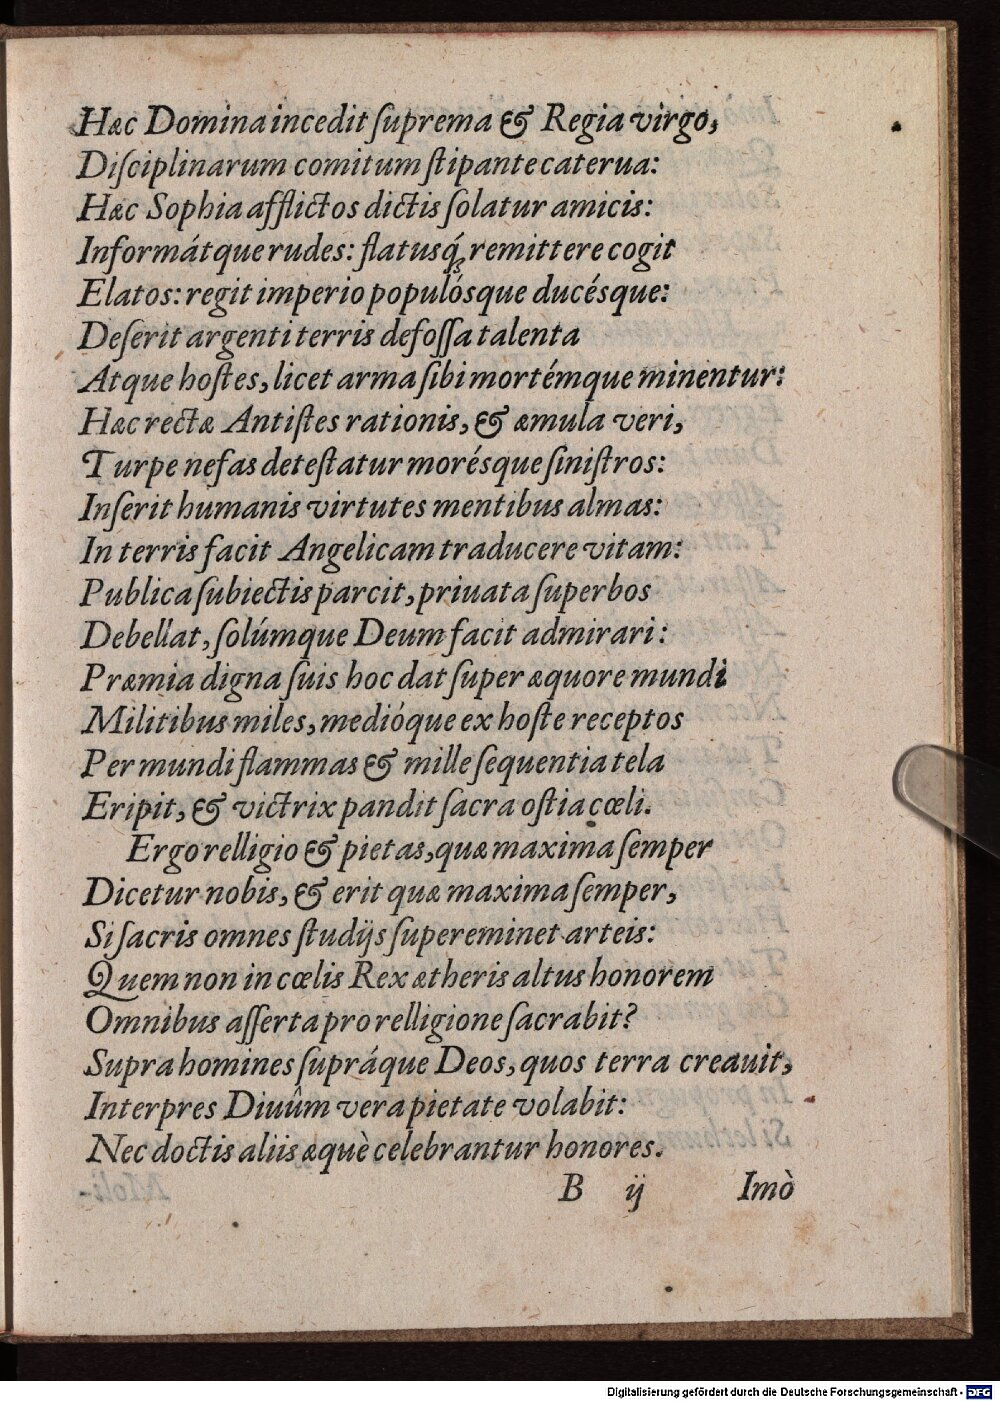 Hæc Domina incedit ſuprema & Regia virgo,
Diſciplinarum comitum ſtipante caterua:
Hæc Sophia afflictos dictis ſolatur amicis:
Informátque rudes: flatusq́; remittere cogit
Elatos: regit imperio populósque ducésque:
Deſerit argenti terris defoſſa talenta
Atque hoſtes, licet arma ſibi mortémque minentur:
Hæc rectæ Antiſtes rationis, & æmula veri,
Turpe nefas deteſtatur morésque ſiniſtros:
Inſerit humanis virtutes mentibus almas:
In terris facit Angelicam traducere vitam:
Publica ſubiectis parcit, priuata ſuperbos
Debellat, ſolúmque Deum facit admirari:
Præmia digna ſuis hoc dat ſuper æquore mundi
Militibus miles, medióque ex hoſte receptos
Per mundi flammas & mille ſequentia tela
Eripit, & victrix pandit ſacra oſtia cœli.
Ergo relligio & pietas, quæ maxima ſemper
Dicetur nobis, & erit quæ maxima ſemper,
Si ſacris omnes ſtudijs ſupereminet arteis:
Quem non in cœlis Rex ætheris altus honorem
Omnibus aſſerta pro relligione ſacrabit?
Supra homines ſupráque Deos, quos terra creauit,
Interpres Diuûm vera pietate volabit:
Nec doctis aliis æquè celebrantur honores.
B ij Imò
Digitalisierung gefördert durch die Deutsche Forschungsgemeinschaft - DFG